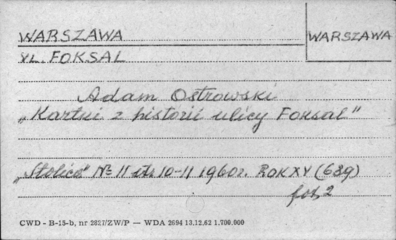 WARSZAWA
WARSZAWA
UL. FOKSAL
Adam Ostrowski
„Kartki z historii ulicy Foksal"
„Stolica" Nr 11 str 10-11 1960r. ROK XV (639)
fot. 2
CWD - B-15-b, nr 2827/ZW/P — WDA 2694 13.12.62 1.700.000